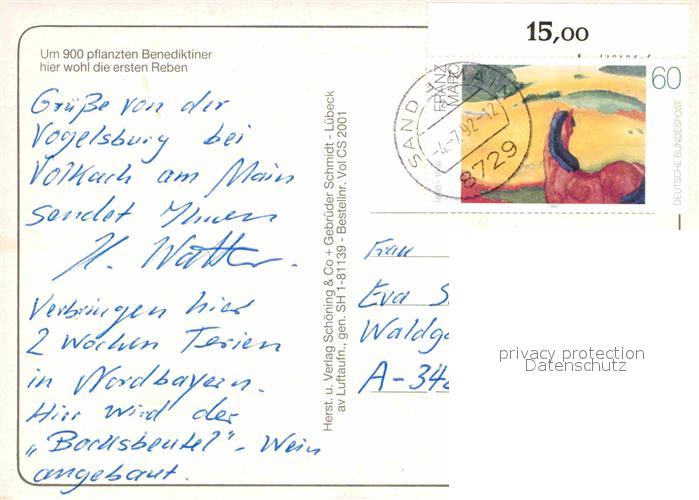 15,00
Um 900 pflanzten Benediktiner
hier wohl die ersten Reben
Grüße von der
Vogelsburg bei
Volkach am Main
sendet Ihnen
H. Watter.
Verbringen hier
2 Wochen Ferien
in Nordbayern.
Hier wird der
„Bocksbeutel"-Wein
angebaut.
Herst. u. Verlag Schöning & Co + Gebrüder Schmidt - Lübeck
av Luftaufn., gen. SH 1-81139 - Bestellnr. Vol CS 2001
FRANZ
MARC
60
DEUTSCHE BUNDESPOST
SAND A MAIN
-4.-7.92-12
8729
Frau
Eva S
Waldga
A-34
privacy protection
Datenschutz